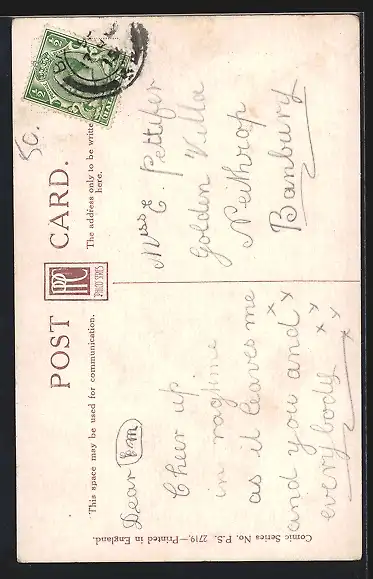 POST CARD.
This space may be used for communication.
The address only to be written
here.
PHILCO SERIES
5c.
Dear Em
Cheer up
in ragtime
as it leaves me
and you and x x
everybody x x x
Miss E. Pettifer
Golden Villa
Neithrop
Banbury
Comic Series No. P.S. 2719.—Printed in England.